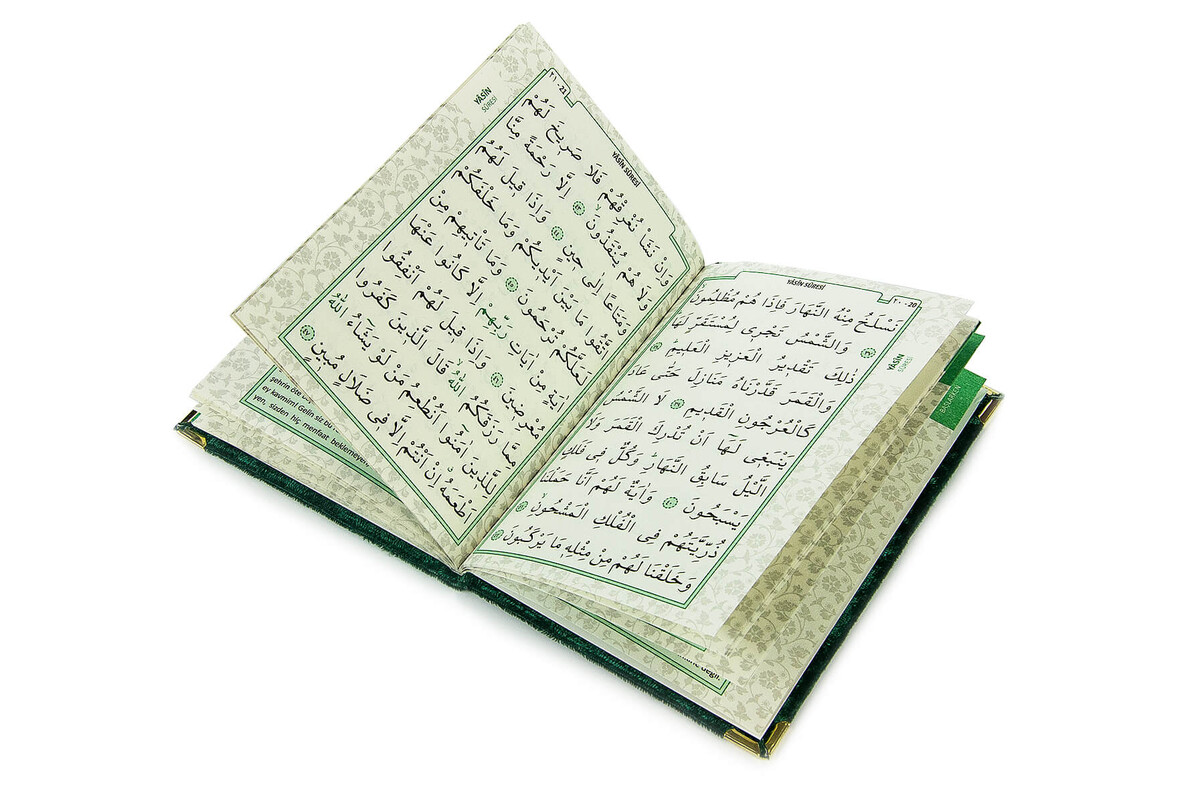 YÂSÎN SÛRESİ
٢٠ - 20
نَسْلَخُ مِنْهُ النَّهَارَ فَاِذَا هُمْ مُظْلِمُونَ ﴿٣٧﴾
وَالشَّمْسُ تَجْر۪ي لِمُسْتَقَرٍّ لَهَا
ذٰلِكَ تَقْد۪يرُ الْعَز۪يزِ الْعَل۪يمِ ﴿٣٨﴾
وَالْقَمَرَ قَدَّرْنَاهُ مَنَازِلَ حَتّٰى عَادَ
كَالْعُرْجُونِ الْقَد۪يمِ ﴿٣٩﴾ لَا الشَّمْسُ
يَنْبَغ۪ي لَهَٓا اَنْ تُدْرِكَ الْقَمَرَ وَلَا
الَّيْلُ سَابِقُ النَّهَارِ وَكُلٌّ ف۪ي فَلَكٍ
يَسْبَحُونَ ﴿٤٠﴾ وَاٰيَةٌ لَهُمْ اَنَّا حَمَلْنَا
ذُرِّيَّتَهُمْ فِي الْفُلْكِ الْمَشْحُونِ ﴿٤١﴾
وَخَلَقْنَا لَهُمْ مِنْ مِثْلِه۪ مَا يَرْكَبُونَ ﴿٤٢﴾
YÂSÎN
SÛRESİ
YÂSÎN SÛRESİ
٢١ - 21
وَاِنْ نَشَأْ نُغْرِقْهُمْ فَلَا صَر۪يخَ لَهُمْ
وَلَا هُمْ يُنْقَذُونَ ﴿٤٣﴾ اِلَّا رَحْمَةً مِنَّا
وَمَتَاعًا اِلٰى ح۪ينٍ ﴿٤٤﴾ وَاِذَا ق۪يلَ لَهُمُ
اتَّقُوا مَا بَيْنَ اَيْد۪يكُمْ وَمَا خَلْفَكُمْ
لَعَلَّكُمْ تُرْحَمُونَ ﴿٤٥﴾ وَمَا تَأْت۪يهِمْ مِنْ
اٰيَةٍ مِنْ اٰيَاتِ رَبِّهِمْ اِلَّا كَانُوا عَنْهَا
مُعْرِض۪ينَ ﴿٤٦﴾ وَاِذَا ق۪يلَ لَهُمْ اَنْفِقُوا
مِمَّا رَزَقَكُمُ اللّٰهُ قَالَ الَّذ۪ينَ كَفَرُوا
لِلَّذ۪ينَ اٰمَنُٓوا اَنُطْعِمُ مَنْ لَوْ يَشَٓاءُ اللّٰهُ
اَطْعَمَهُ اِنْ اَنْتُمْ اِلَّا ف۪ي ضَلَالٍ مُب۪ينٍ ﴿٤٧﴾
YÂSÎN
SÛRESİ
şehrin öte
ey kavmim! Gelin siz bu
yen, sizden hiç menfaat beklemeyen
değil.
BAĞLARKEN